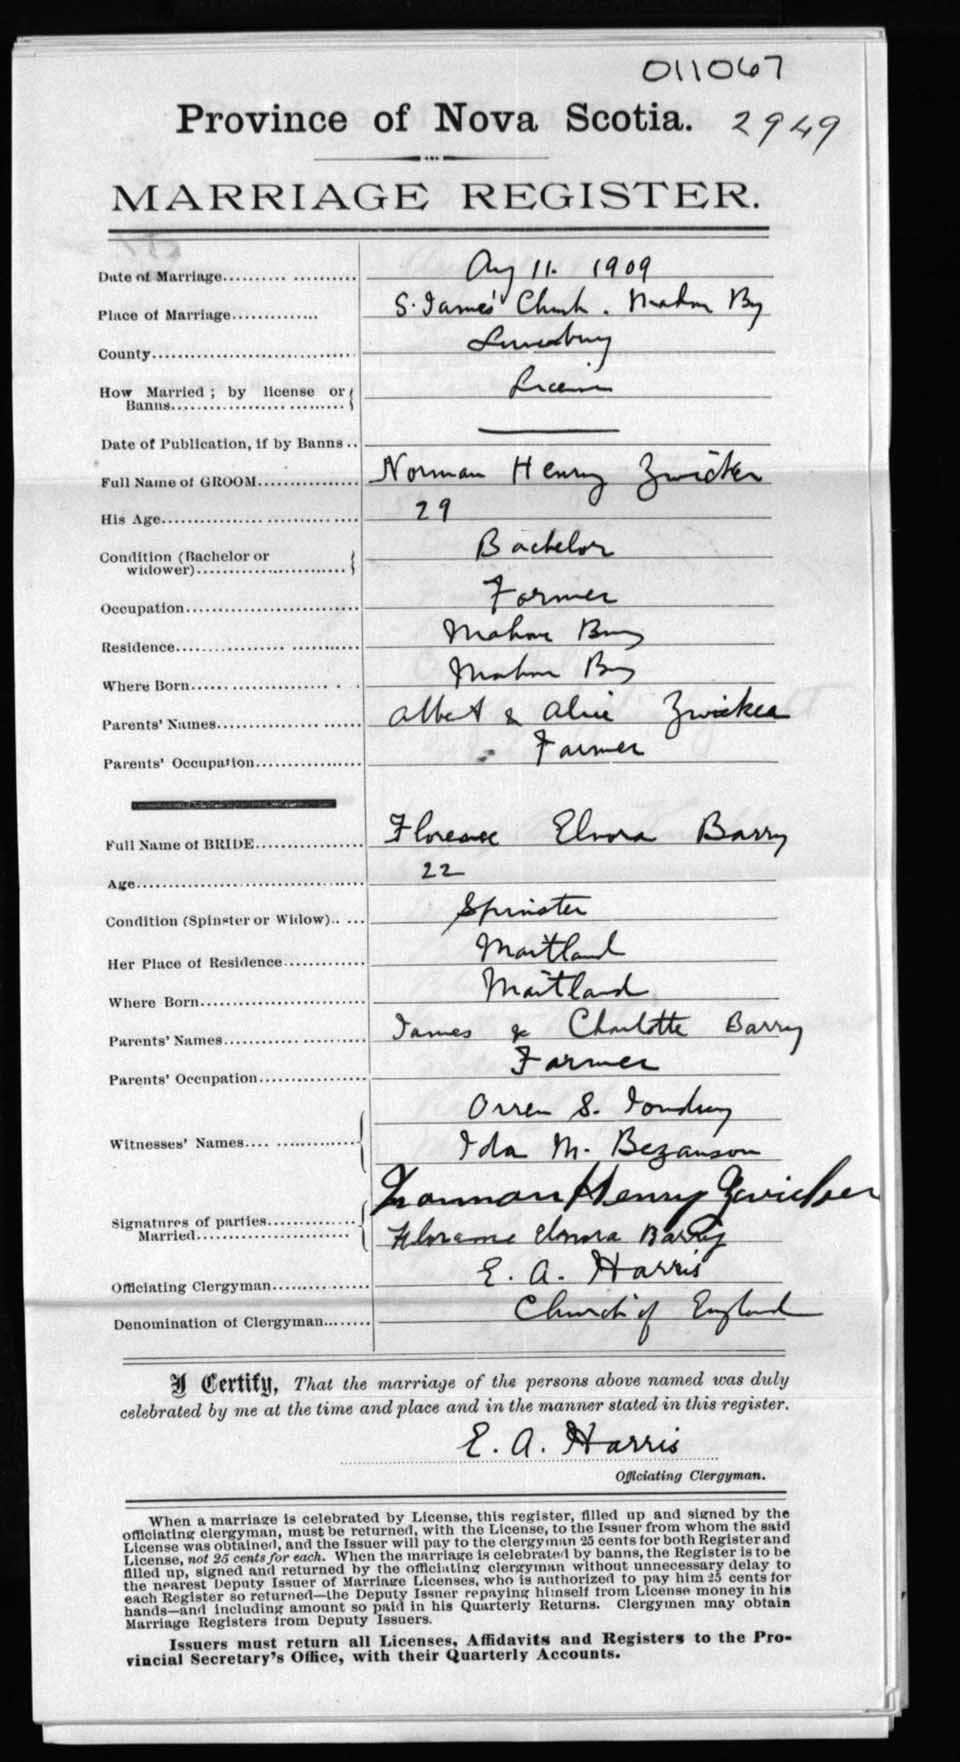 011067
Province of Nova Scotia. 2949
MARRIAGE REGISTER.
Date of Marriage.................... Aug 11. 1909
Place of Marriage.............. S. James' Church. Mahone Bay
County................................. Lunenburg
How Married; by license or License
Banns..............................
Date of Publication, if by Banns .. ———
Full Name of GROOM............... Norman Henry Zwicker
His Age................................ 29
Condition (Bachelor or Bachelor
widower)...........................
Occupation............................ Farmer
Residence.............................. Mahone Bay
Where Born............................ Mahone Bay
Parents' Names...................... Albert & Alice Zwicker
Parents' Occupation................ Farmer
Full Name of BRIDE................ Florence Elnora Barry
Age..................................... 22
Condition (Spinster or Widow)..... Spinster
Her Place of Residence............ Maitland
Where Born........................... Maitland
Parents' Names...................... James & Charlotte Barry
Parents' Occupation................ Farmer
Orren S.
Witnesses' Names....................
Ida M. Bezanson
Norman Henry Zwicker
Signatures of parties..............
Married......................... Florence Elnora Barry
Officiating Clergyman............. E. A. Harris
Denomination of Clergyman....... Church of England
I Certify, That the marriage of the persons above named was duly
celebrated by me at the time and place and in the manner stated in this register.
E. A. Harris
Officiating Clergyman.
When a marriage is celebrated by License, this register, filled up and signed by the
officiating clergyman, must be returned, with the License, to the Issuer from whom the said
License was obtained, and the Issuer will pay to the clergyman 25 cents for both Register and
License, not 25 cents for each. When the marriage is celebrated by banns, the Register is to be
filled up, signed and returned by the officiating clergyman without unnecessary delay to
the nearest Deputy Issuer of Marriage Licenses, who is authorized to pay him 25 cents for
each Register so returned—the Deputy Issuer repaying himself from License money in his
hands—and including amount so paid in his Quarterly Returns. Clergymen may obtain
Marriage Registers from Deputy Issuers.
Issuers must return all Licenses, Affidavits and Registers to the Pro-
vincial Secretary's Office, with their Quarterly Accounts.